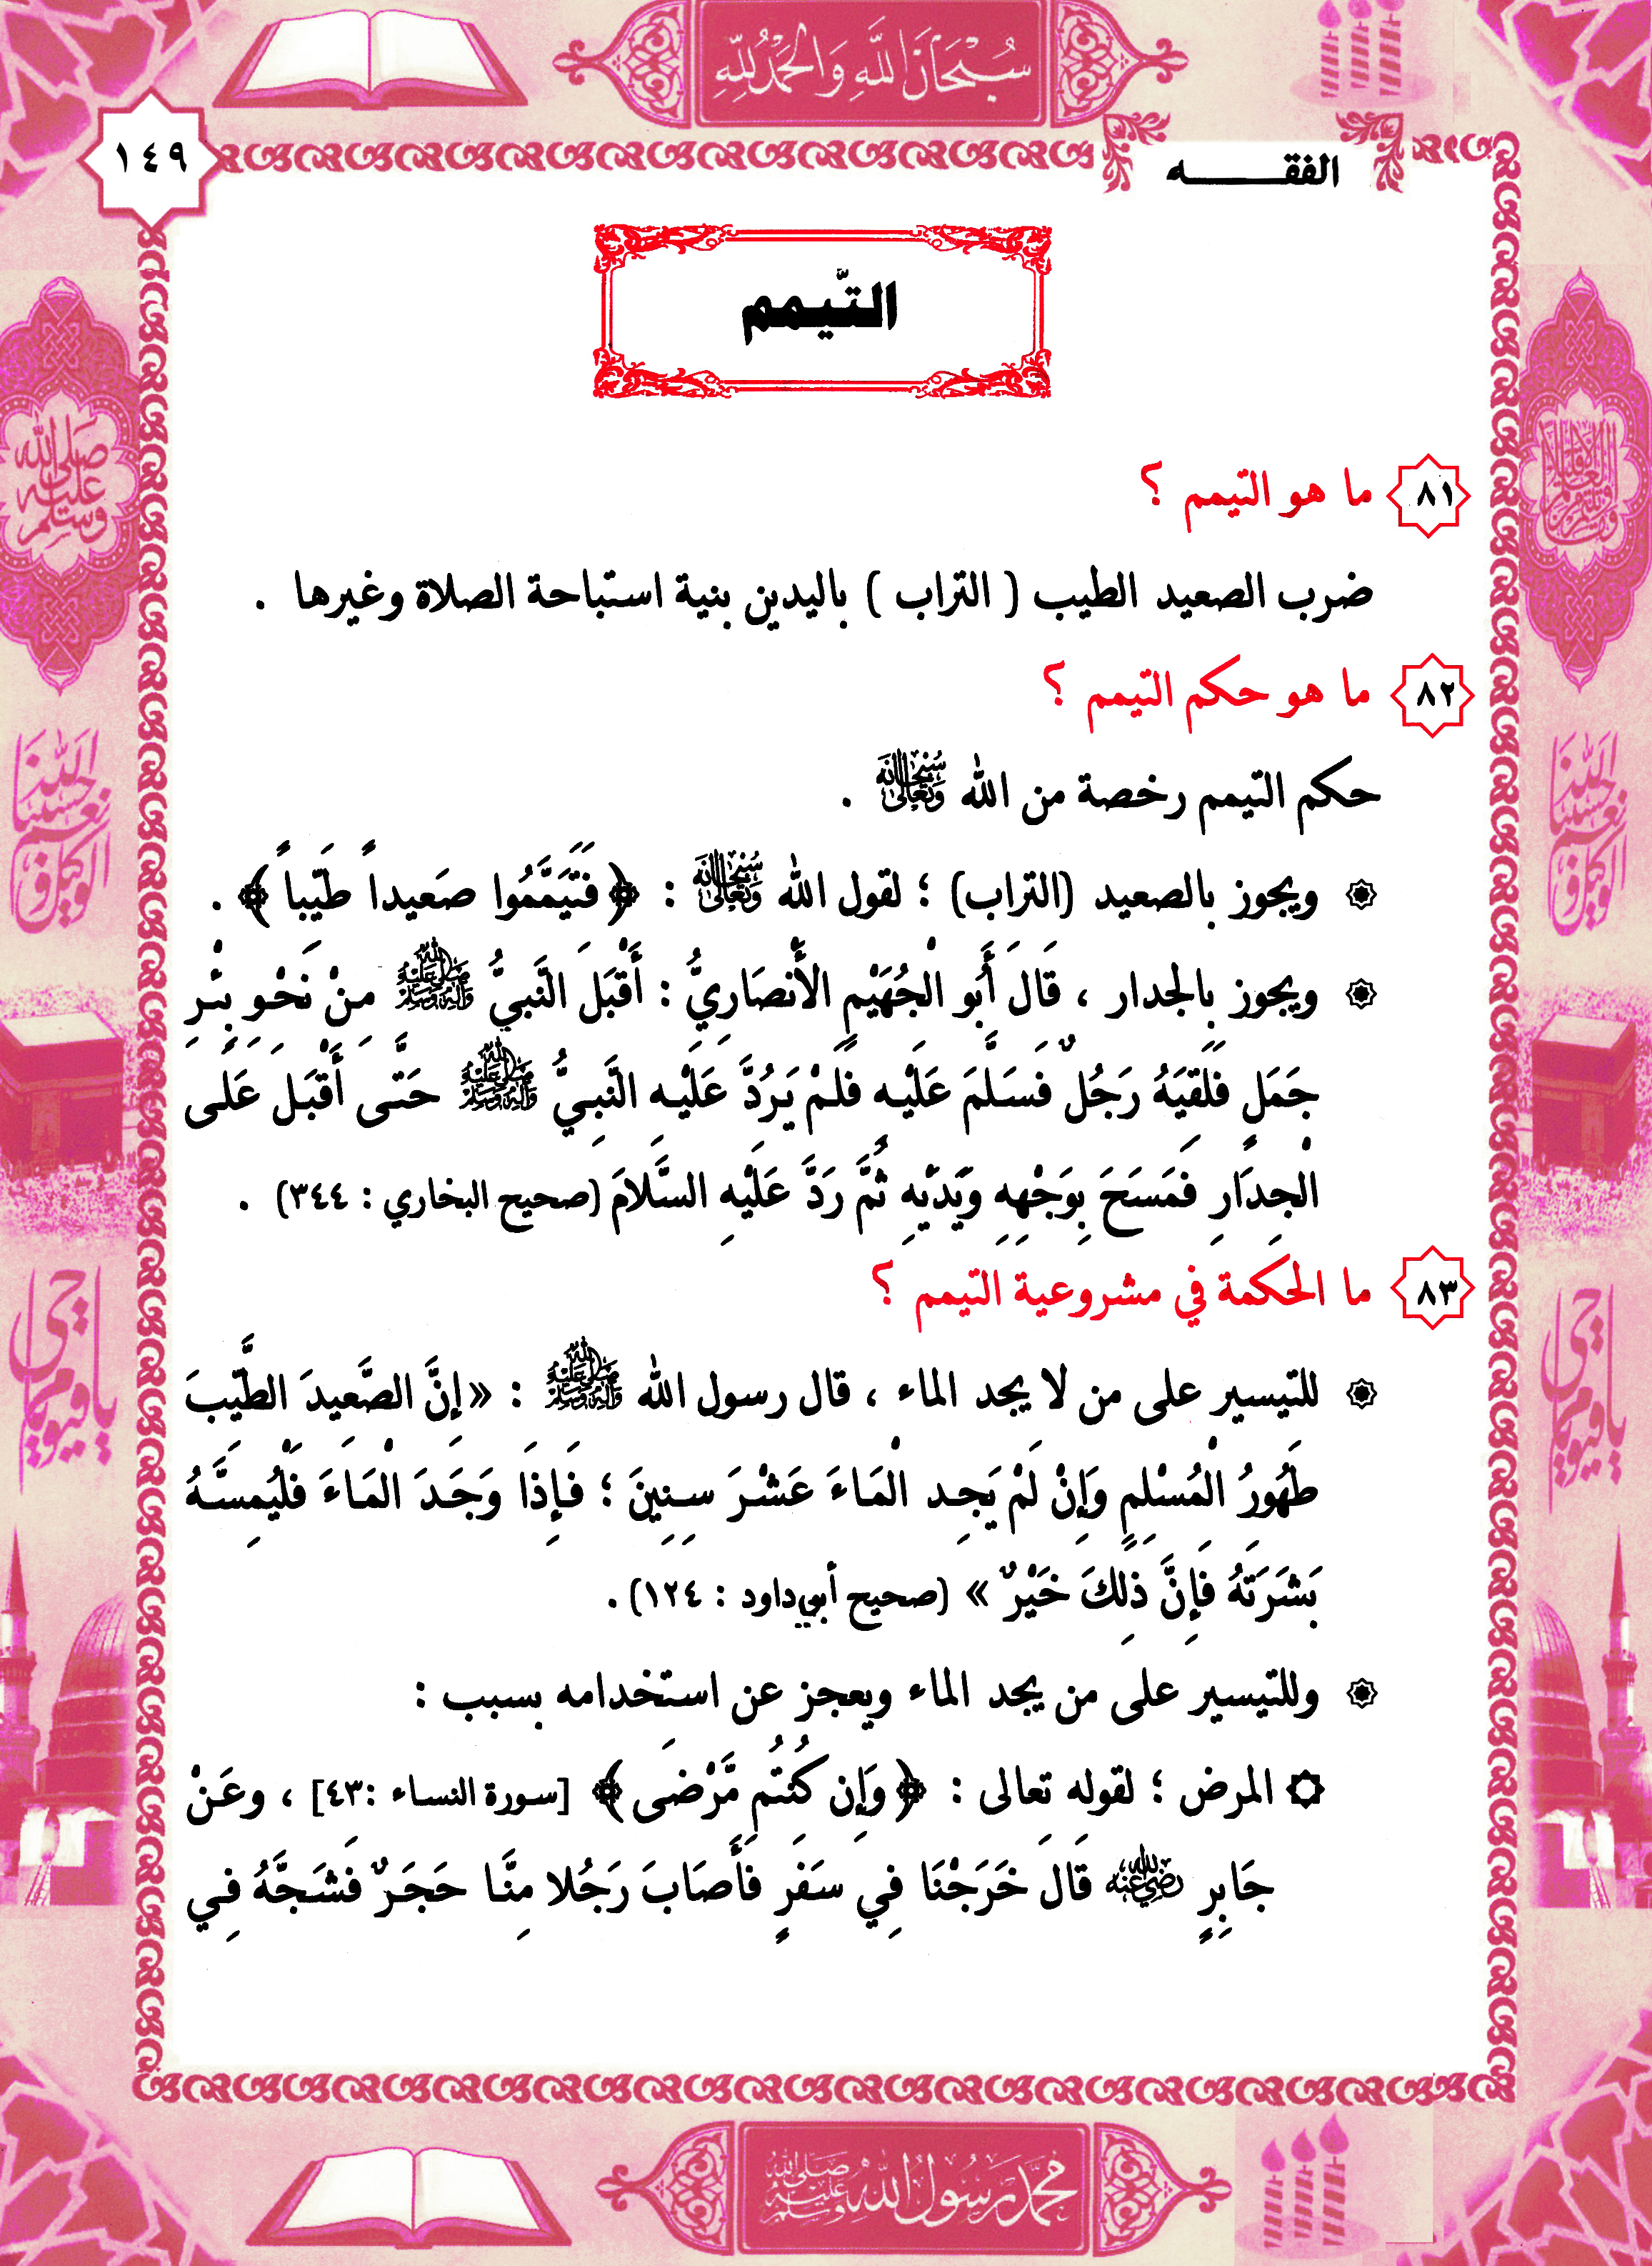 سُبْحَانَ اللَّهِ وَالْحَمْدُ لِلَّهِ
١٤٩
الفقـــــه
التّيمم
٨١ ما هو التيمم ؟
ضرب الصعيد الطيب ( التراب ) باليدين بنية استباحة الصلاة وغيرها .
٨٢ ما هو حكم التيمم ؟
حكم التيمم رخصة من الله سُبْحَانَهُ وَتَعَالَىٰ .
ويجوز بالصعيد (التراب) ؛ لقول الله سُبْحَانَهُ وَتَعَالَىٰ : ﴿فَتَيَمَّمُوا صَعيداً طَيّباً﴾ .
ويجوز بالجدار ، قَالَ أَبُو الْجُهَيْمِ الأَنْصَارِيُّ : أَقْبَلَ النَّبيُّ ﷺ مِنْ نَحْوِ بِئْرِ
جَمَلٍ فَلَقِيَهُ رَجُلٌ فَسَلَّمَ عَلَيْهِ فَلَمْ يَرُدَّ عَلَيْهِ النَّبِيُّ ﷺ حَتَّى أَقْبَلَ عَلَى
الْجِدَارِ فَمَسَحَ بِوَجْهِهِ وَيَدَيْهِ ثُمَّ رَدَّ عَلَيْهِ السَّلَامَ (صحيح البخاري : ٣٤٤) .
٨٣ ما الحكمة في مشروعية التيمم ؟
للتيسير على من لا يجد الماء ، قال رسول الله ﷺ : «إِنَّ الصَّعِيدَ الطَّيِّبَ
طَهُورُ الْمُسْلِمِ وَإِنْ لَمْ يَجِدِ الْمَاءَ عَشْرَ سِنِينَ ؛ فَإِذَا وَجَدَ الْمَاءَ فَلْيُمِسَّهُ
بَشَرَتَهُ فَإِنَّ ذَلِكَ خَيْرٌ » (صحيح أبي داود : ١٢٤) .
وللتيسير على من يجد الماء ويعجز عن استخدامه بسبب :
المرض ؛ لقوله تعالى : ﴿وَإِن كُنتُم مَّرْضَى﴾ [سورة النساء :٤٣] ، وعَنْ
جَابِرٍ رَضِيَ اللهُ عَنْهُ قَالَ خَرَجْنَا فِي سَفَرٍ فَأَصَابَ رَجُلا مِنَّا حَجَرٌ فَشَجَّهُ فِي
صلى الله عليه وسلم
حسبنا الله ونعم الوكيل
حسبنا الله ونعم الوكيل
يا حي يا قيوم
يا حي يا قيوم
مُحَمَّدٌ رَسُولُ اللَّهِ صَلَّى اللَّهُ عَلَيْهِ وَسَلَّمَ